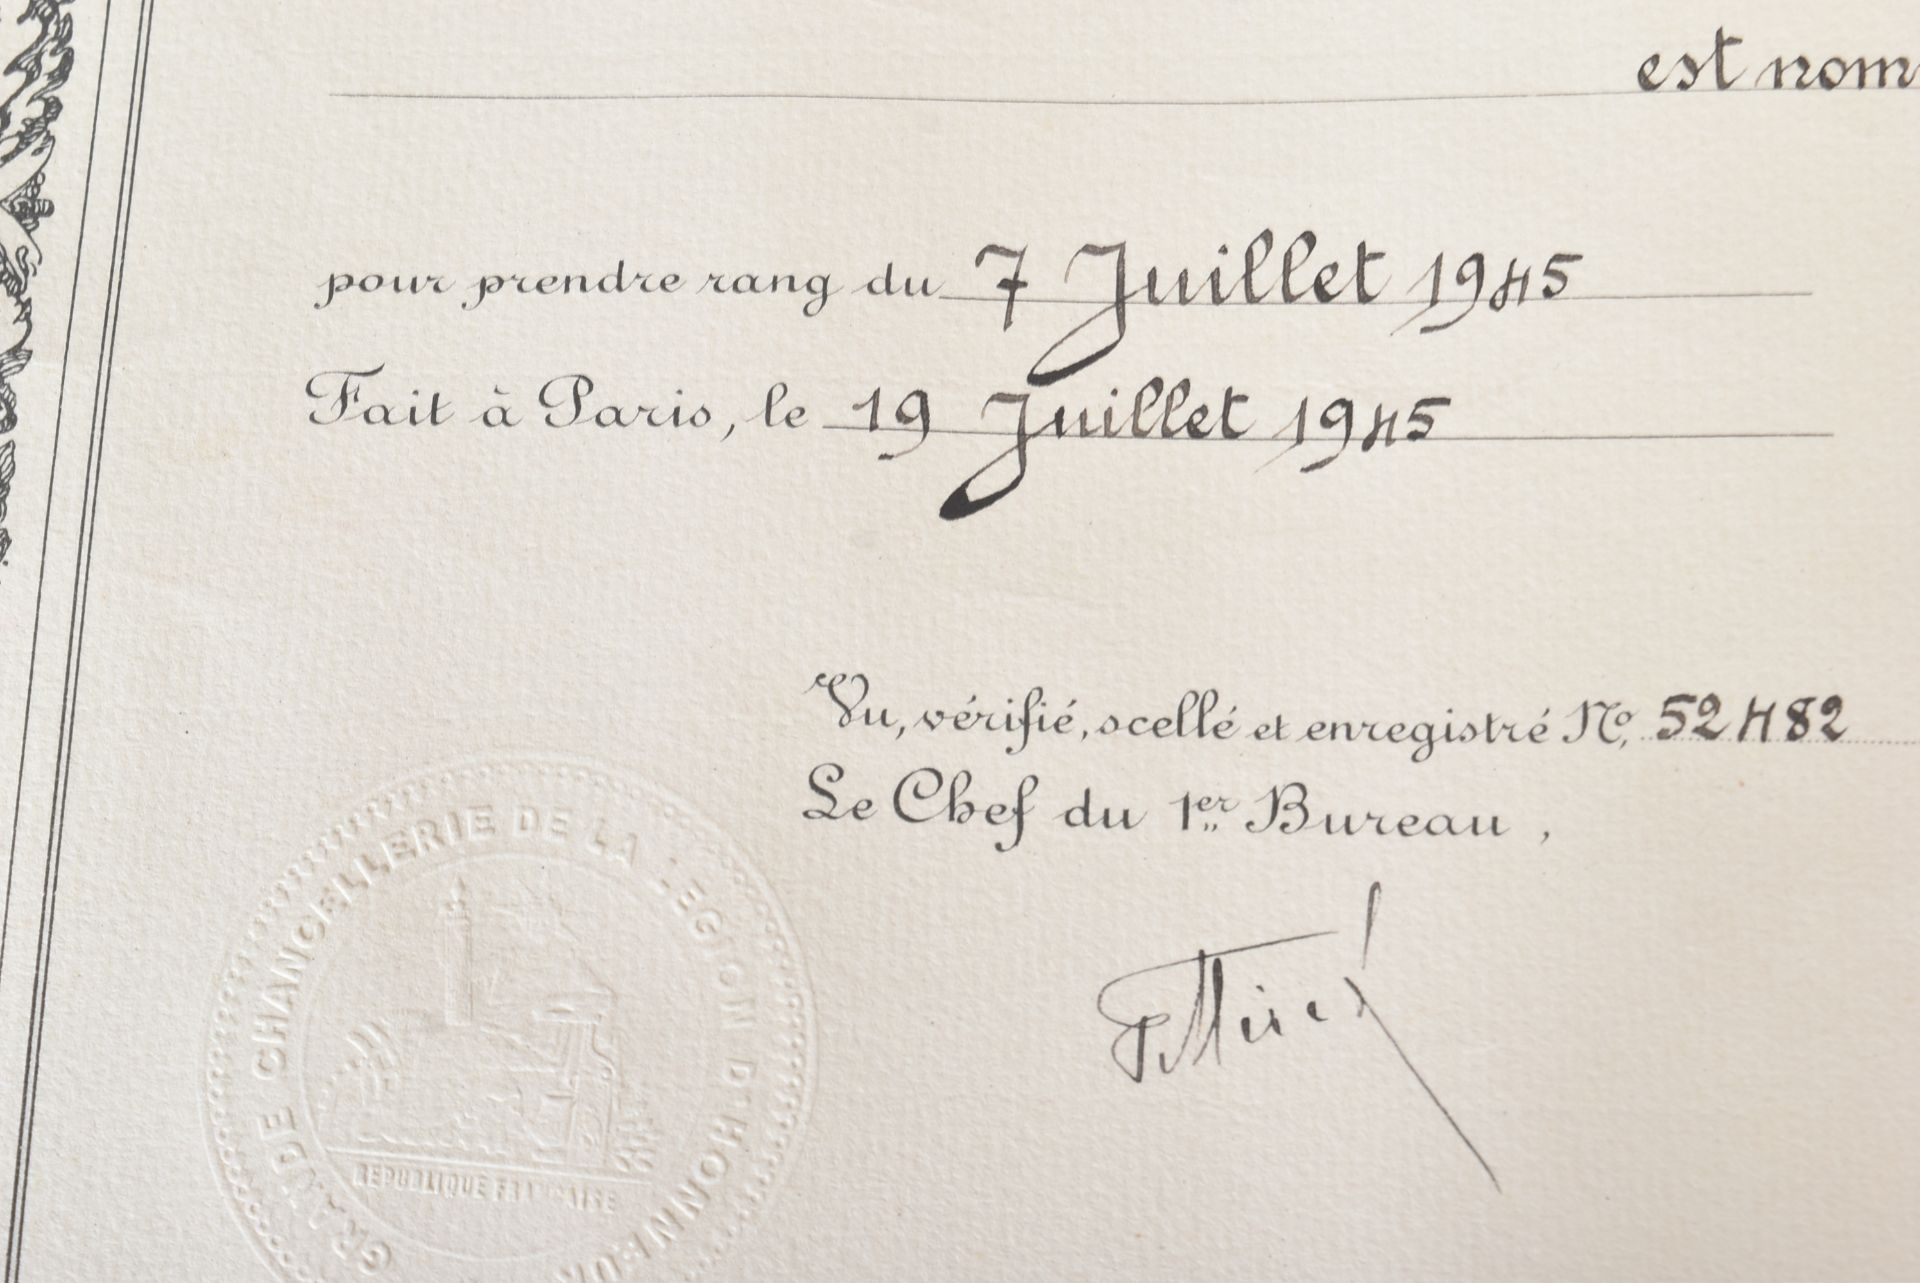 est nom
pour prendre rang du 7 Juillet 1945
Fait à Paris, le 19 Juillet 1945
Vu, vérifié, scellé et enregistré No, 52482
Le Chef du 1er Bureau,
GRANDE CHANCELLERIE DE LA LEGION D'HONNEUR
REPUBLIQUE FRANCAISE